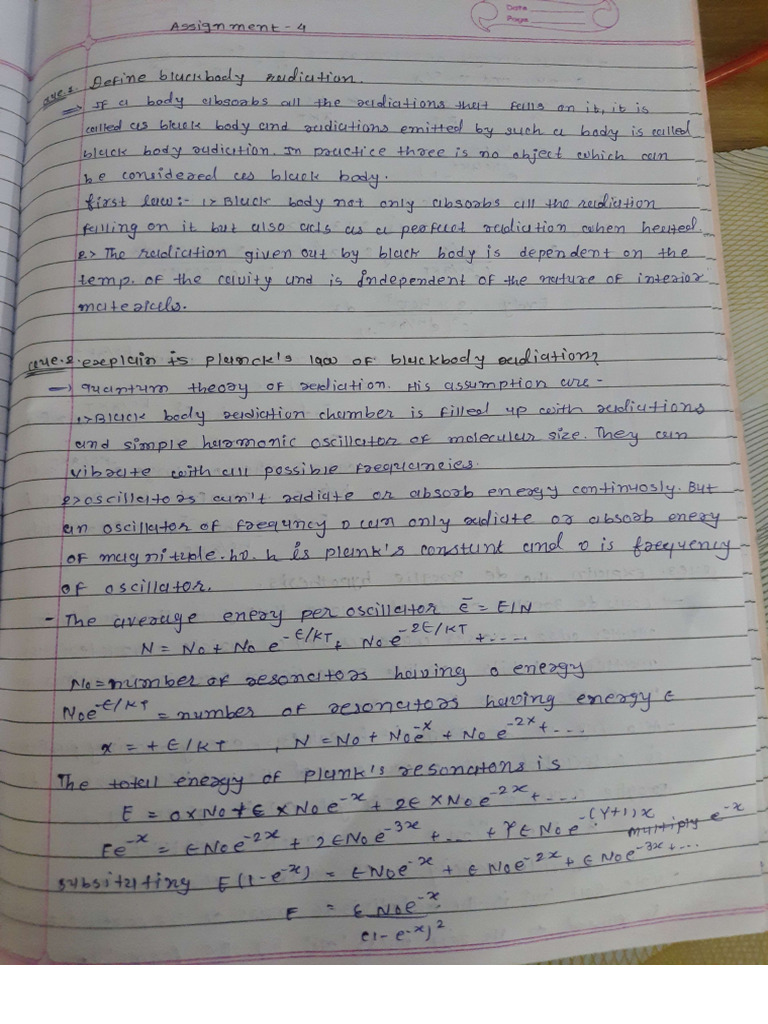 Date
Page
Assignment - 4
Que.1 Define blackbody radiation.
→ If a body absorbs all the radiations that falls on it, it is
called as black body and radiations emitted by such a body is called
black body radiation. In practice three is no object which can
be considered as black body.
first law:- 1> Black body not only absorbs all the radiation
falling on it but also acts as a perfact radiation when heated.
2> The radiation given out by black body is dependent on the
temp. of the cavity and is independent of the nature of interior
materials.
Que.2. explain is planck's law of blackbody radiation?
→ quantum theory of radiation. His assumption are -
1> Black body radiation chamber is filled up with radiations
and simple harmonic oscillator of molecular size. They can
vibrate with all possible frequancies.
2> oscillators can't radiate or absorb energy continuosly. But
an oscillator of frequncy υ can only radiate or absorb enery
of magnitude. hυ. h is plank's constant and υ is frequency
of oscillator.
- The average enery per oscillator ē = E/N
N = N₀ + N₀ e^-ϵ/kT + N₀ e^-2ϵ/kT + ....
N₀ = number of resonators having 0 energy
N₀e^-ϵ/kT = number of resonators having energy ϵ
x = + ϵ/kT , N = N₀ + N₀e^-x + N₀ e^-2x + ...
The total energy of plank's resonators is
E = 0×N₀ + ϵ×N₀e^-x + 2ϵ×N₀e^-2x + ...
Ee^-x = ϵN₀e^-2x + 2ϵN₀e^-3x + ... + rϵN₀e^-(r+1)x multiply e^-x
subsitating E(1-e^-x) = ϵN₀e^-x + ϵN₀e^-2x + ϵN₀e^-3x + ...
E = ϵN₀e^-x / (1-e^-x)²